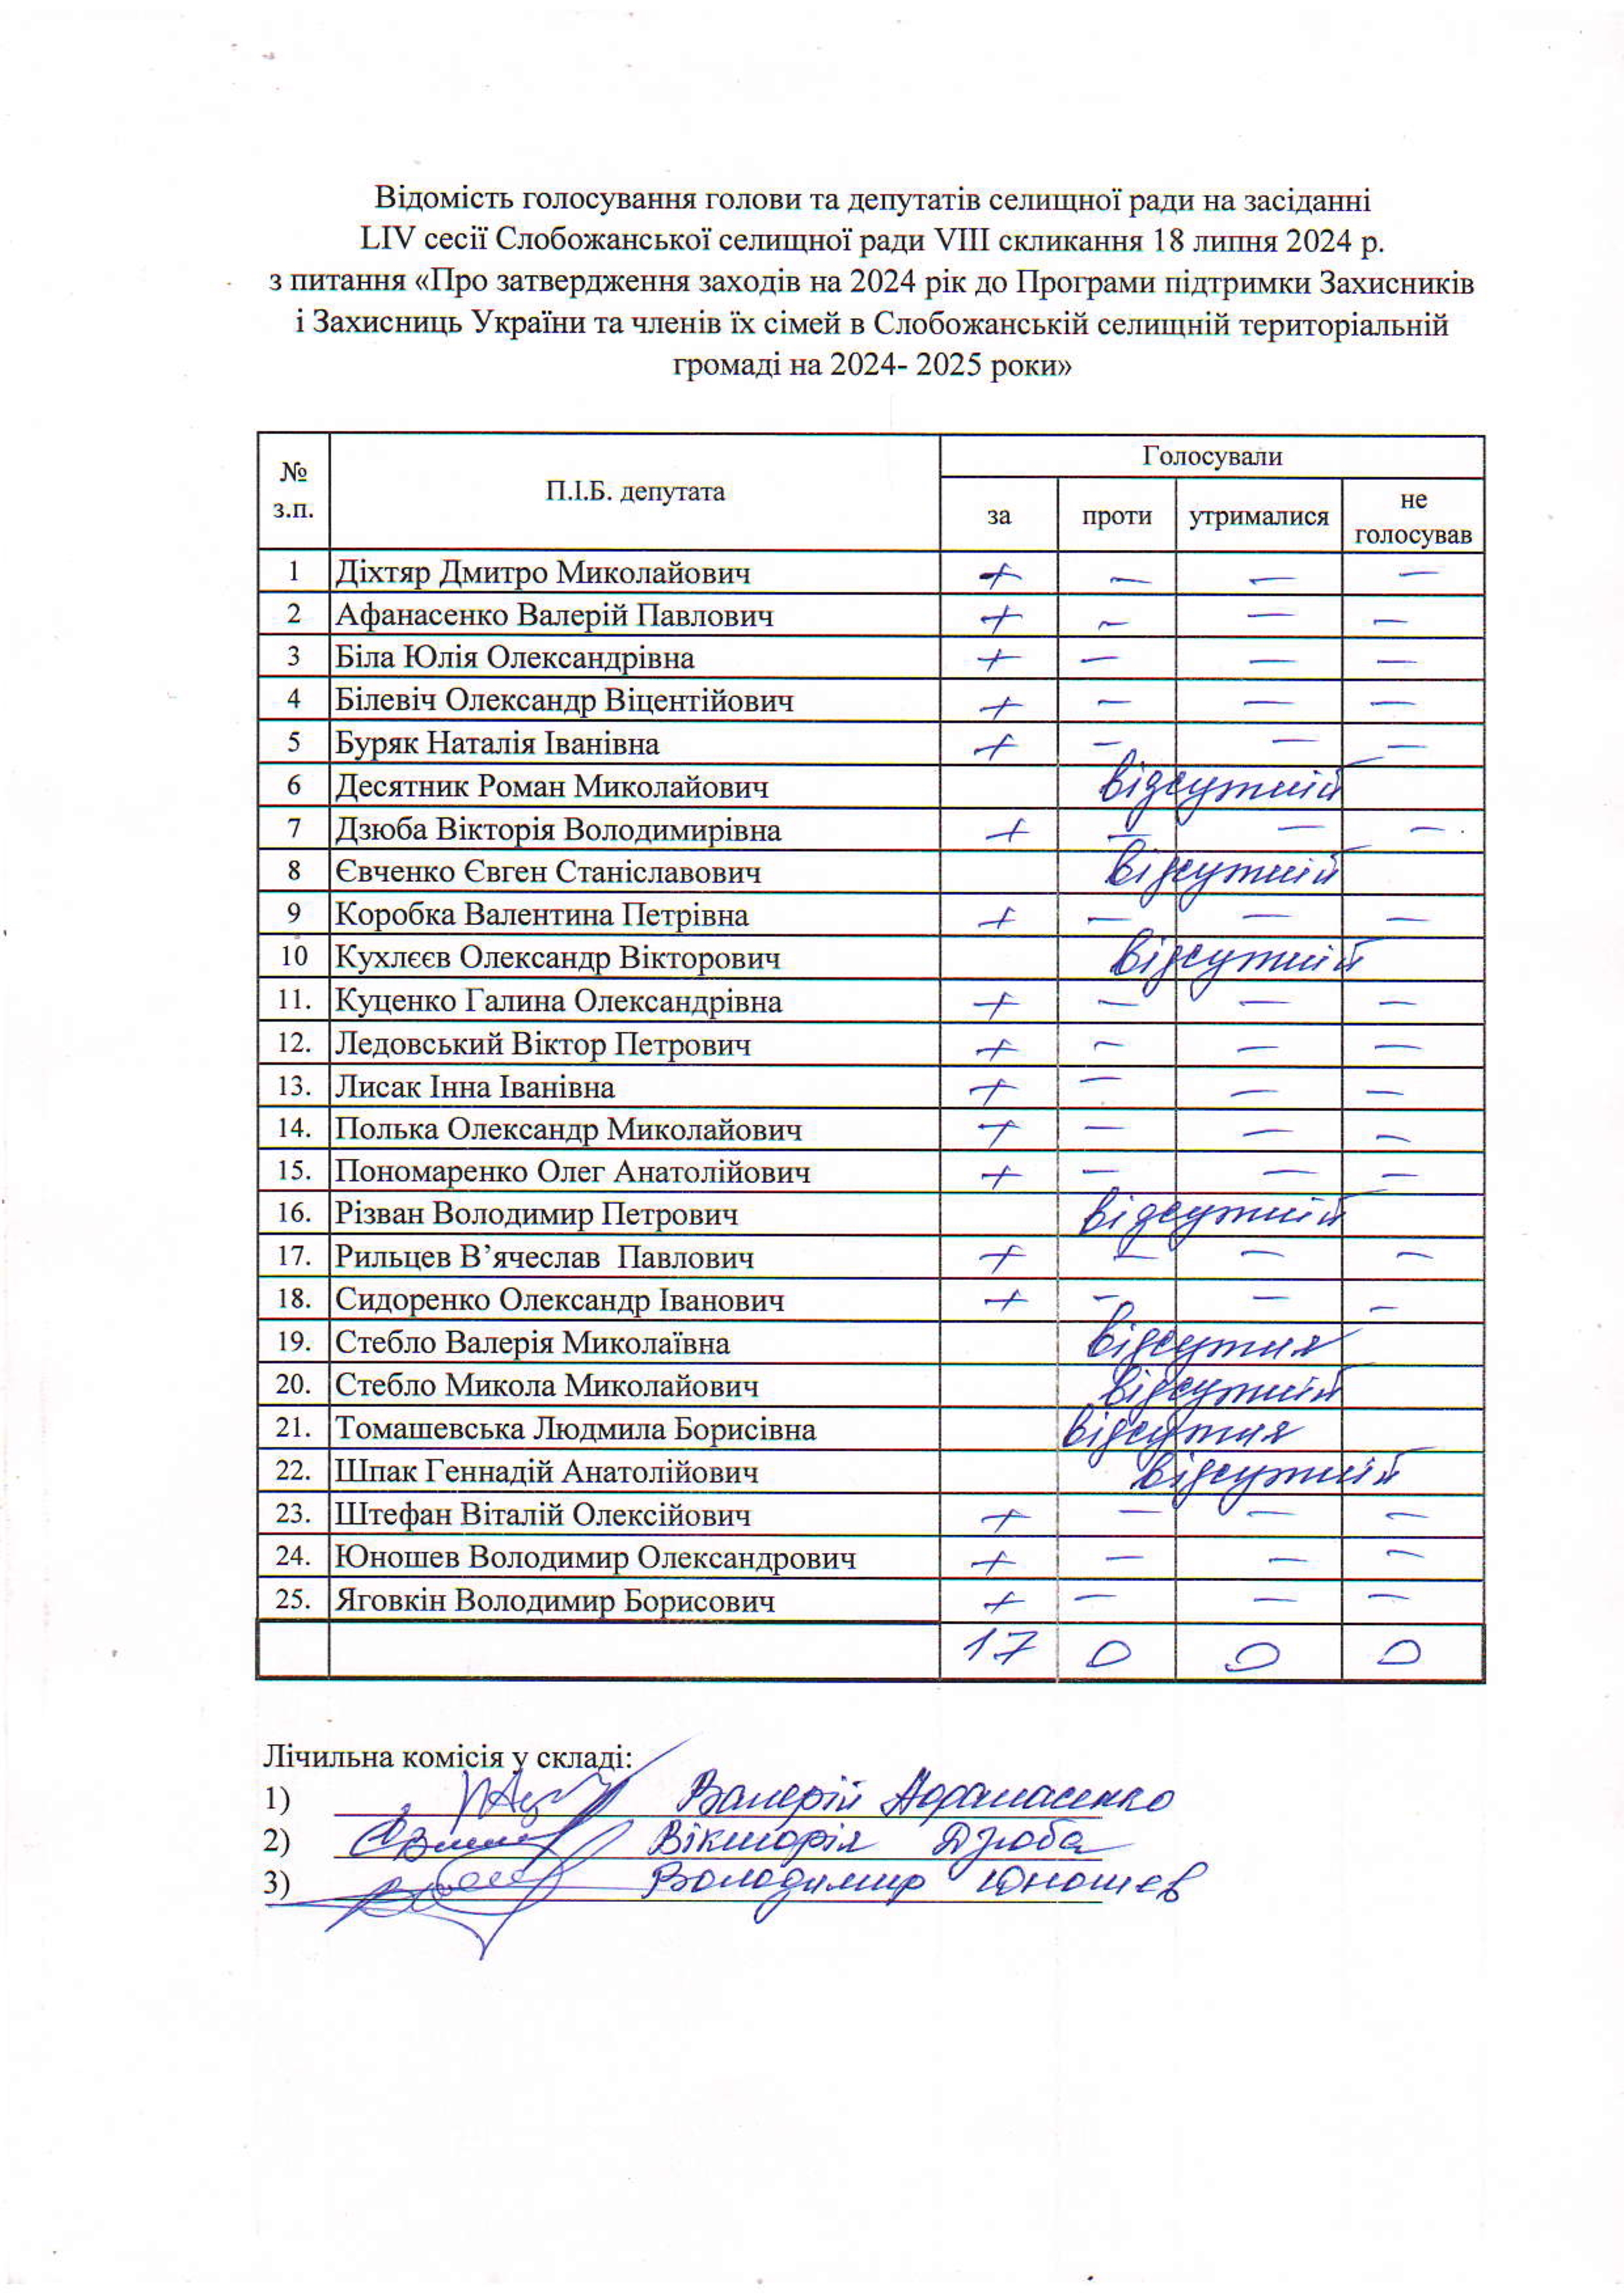 Відомість голосування голови та депутатів селищної ради на засіданні
LIV сесії Слобожанської селищної ради VIII скликання 18 липня 2024 р.
з питання «Про затвердження заходів на 2024 рік до Програми підтримки Захисників
і Захисниць України та членів їх сімей в Слобожанській селищній територіальній
громаді на 2024- 2025 роки»
№ з.п. П.І.Б. депутата Голосували
за проти утрималися не голосував
1 Діхтяр Дмитро Миколайович + — — —
2 Афанасенко Валерій Павлович + — — —
3 Біла Юлія Олександрівна + — — —
4 Білевіч Олександр Віцентійович + — — —
5 Буряк Наталія Іванівна + — — —
6 Десятник Роман Миколайович відсутній
7 Дзюба Вікторія Володимирівна + — — —
8 Євченко Євген Станіславович відсутній
9 Коробка Валентина Петрівна + — — —
10 Кухлєєв Олександр Вікторович відсутній
11. Куценко Галина Олександрівна + — — —
12. Ледовський Віктор Петрович + — — —
13. Лисак Інна Іванівна + — — —
14. Полька Олександр Миколайович + — — —
15. Пономаренко Олег Анатолійович + — — —
16. Різван Володимир Петрович відсутній
17. Рильцев В’ячеслав Павлович + — — —
18. Сидоренко Олександр Іванович + — — —
19. Стебло Валерія Миколаївна відсутня
20. Стебло Микола Миколайович відсутній
21. Томашевська Людмила Борисівна відсутня
22. Шпак Геннадій Анатолійович відсутній
23. Штефан Віталій Олексійович + — — —
24. Юношев Володимир Олександрович + — — —
25. Яговкін Володимир Борисович + — — —
17 0 0 0
Лічильна комісія у складі:
1) Валерій Афанасенко
2) Вікторія Дзюба
3) Володимир Юношев